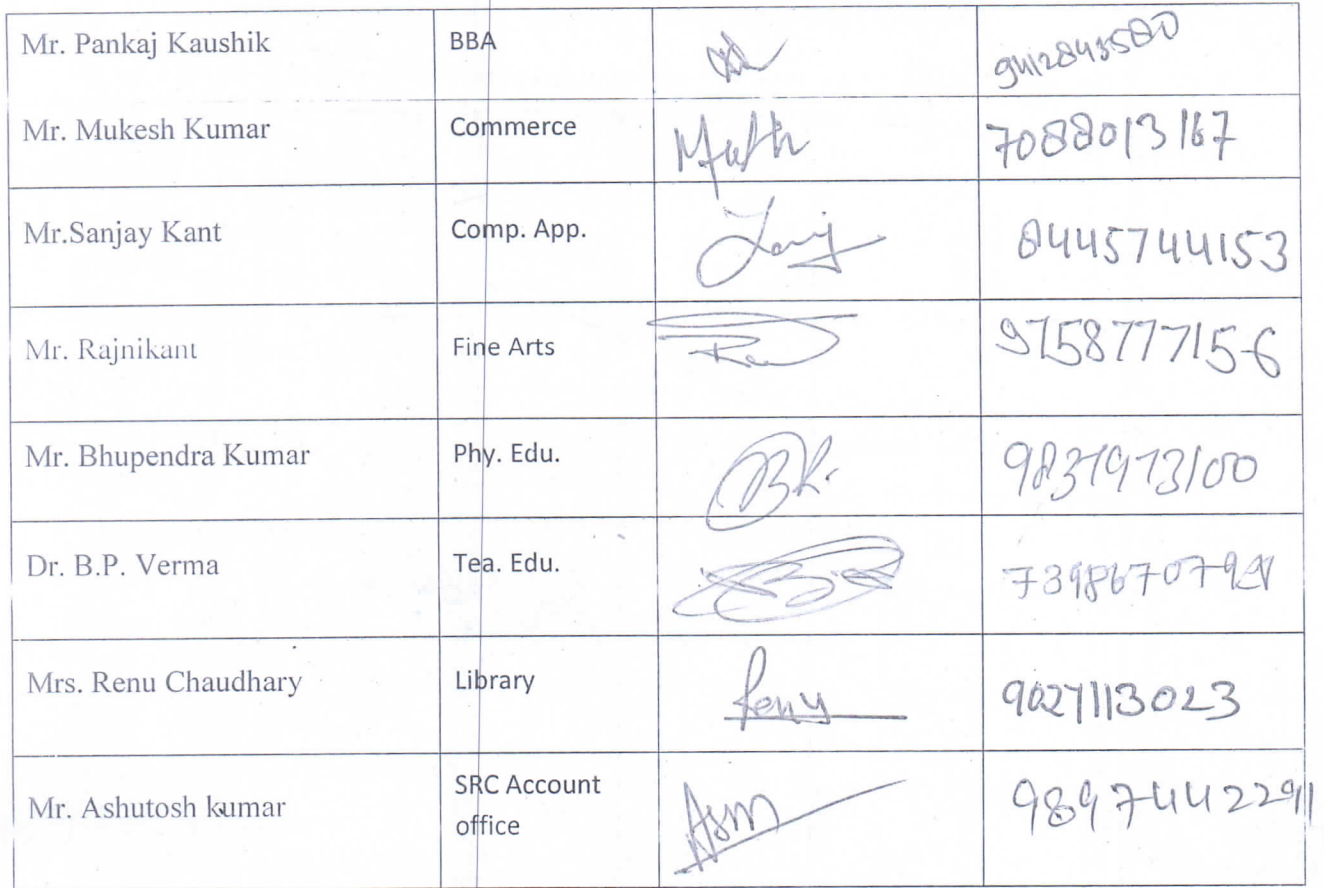 Mr. Pankaj Kaushik BBA 9412843580
Mr. Mukesh Kumar Commerce 7088013167
Mr.Sanjay Kant Comp. App. 8445744153
Mr. Rajnikant Fine Arts 9758777156
Mr. Bhupendra Kumar Phy. Edu. BK.
Dr. B.P. Verma Tea. Edu.
Mrs. Renu Chaudhary Library Renu 9027113023
Mr. Ashutosh kumar SRC Account
office 9897442291